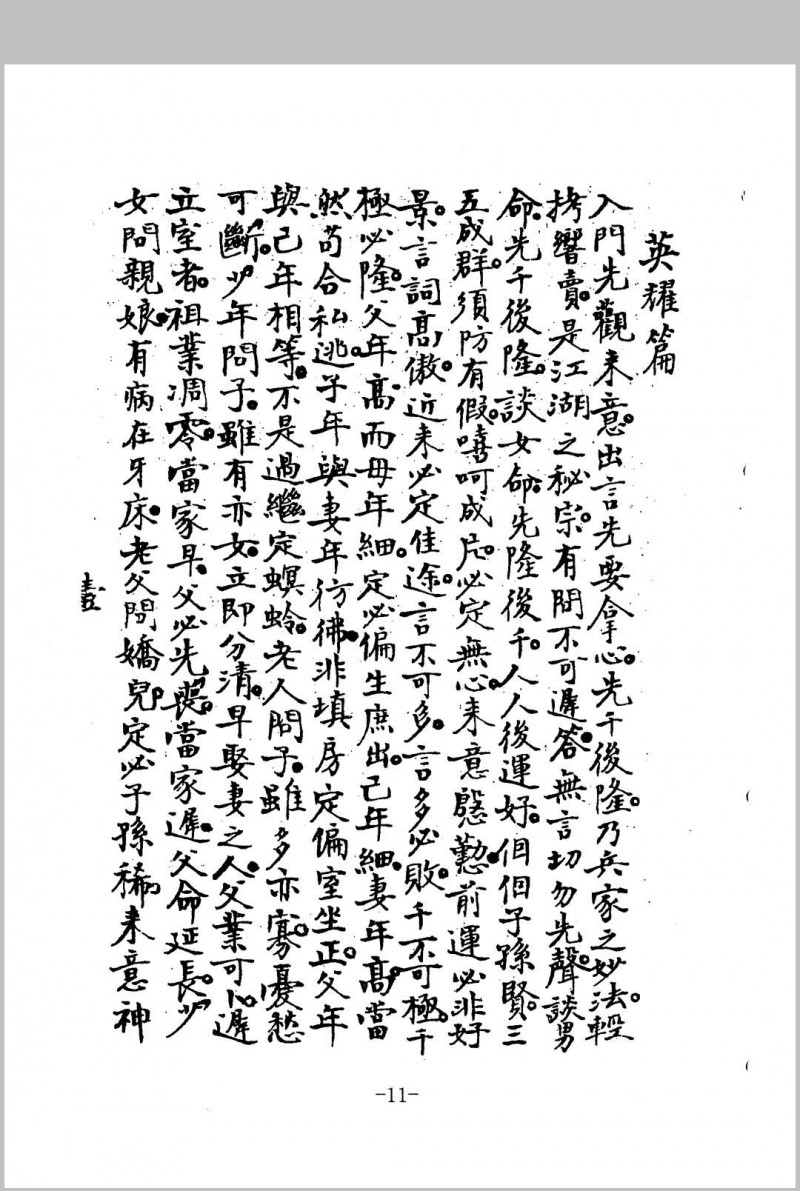 英耀篇
入門先觀来意。出言先要拿心。先千後隆。乃兵家之妙法。輕
拷響賣。是江湖之秘宗。有問不可遲答。無言切勿先聲。談男
命。先千後隆。談女命。先隆後千。人人後運好。個個子孫賢。三
五成群。須防有假。嘻呵成片。必定無心。来意慇懃。前運必非好
景。言詞高傲。近来必定佳途。言不可多。言多必敗。千不可極。千
極必隆。父年高而母年細。定必偏生庶出。己年細。妻年高。當
然苟合私逃。子年與妻年彷彿。非填房定偏室坐正。父年
與己年相等。不是過繼定螟蛉。老人問子。雖多亦寡。憂愁
可斷。少年問子。雖有亦女。立即分清。早娶妻之人。父業可卜。遲
立室者。祖業凋零。當家早。父必先喪。當家遲。父命延長。少
女問親娘。有病在牙床。老父問嬌兒。定必子孫稀。来意神
壹
-11-